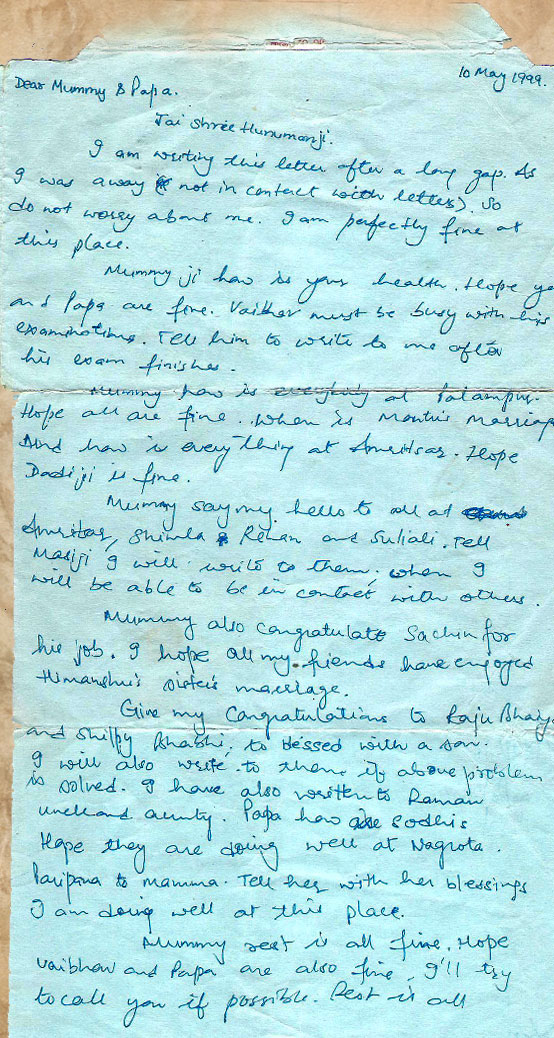 10 May 1999.
Dear Mummy & Papa.
Jai Shree Hunumanji.
I am writing this letter after a long gap. As
I was away (not in contact with letters). So
do not worry about me. I am perfectly fine at
this place.
Mummy ji how is your health. Hope you
and Papa are fine. Vaibhav must be busy with his
examinations. Tell him to write to me after
his exam finishes.
Mummy how is everything at Palampur.
Hope all are fine. When is Marriage
And how is everything at Amritsar. Hope
Dadiji is fine.
Mummy say my hello to all at
Amritsar, Shimla & Rehan and Suliali. Tell
Masiji I will write to them, when I
will be able to be in contact with others.
Mummy also congratulate Sachin for
his job. I hope all my friends have enjoyed
Himanshu's sister's marriage.
Give my Congratulations to Raju Bhaiya
and Shilpy Bhabhi, to blessed with a son.
I will also write to them if above problem
is solved. I have also written to Raman
uncle and aunty. Papa how are Sodhis
Hope they are doing well at Nagrota.
Paripana to mamma. Tell her with her blessings
I am doing well at this place.
Mummy rest is all fine. Hope
Vaibhav and Papa are also fine. I'll try
to call you if possible. Rest is all